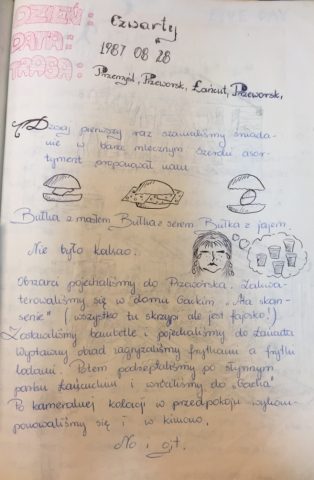 DZIEŃ: Czwarty
DATA: 1987 08 28
TRASA: Przemyśl, Przeworsk, Łańcut, Przeworsk,
Dzisiaj pierwszy raz szamaliśmy śniada-
nie w barze mlecznym. Szeroki asor-
tyment proponował nam
Bułka z masłem Bułka z serem Bułka z jajem.
Nie było kakao.
pojechaliśmy do Przeworska. Zakwa-
terowaliśmy się w domu "Na skan-
senie" (wszystko tu skrzypi ale jest fajosko!)
Zostawiliśmy bambetle i pojechaliśmy do Łańcuta
Wystawny obiad zagryzaliśmy frytkami a frytki
lodami. Potem podreptaliśmy po słynnym
parku Łańcuckim i wróciliśmy do
Po kameralnej kolacji w przedpokoju wykom-
ponowaliśmy się i w kimono.
No i git.